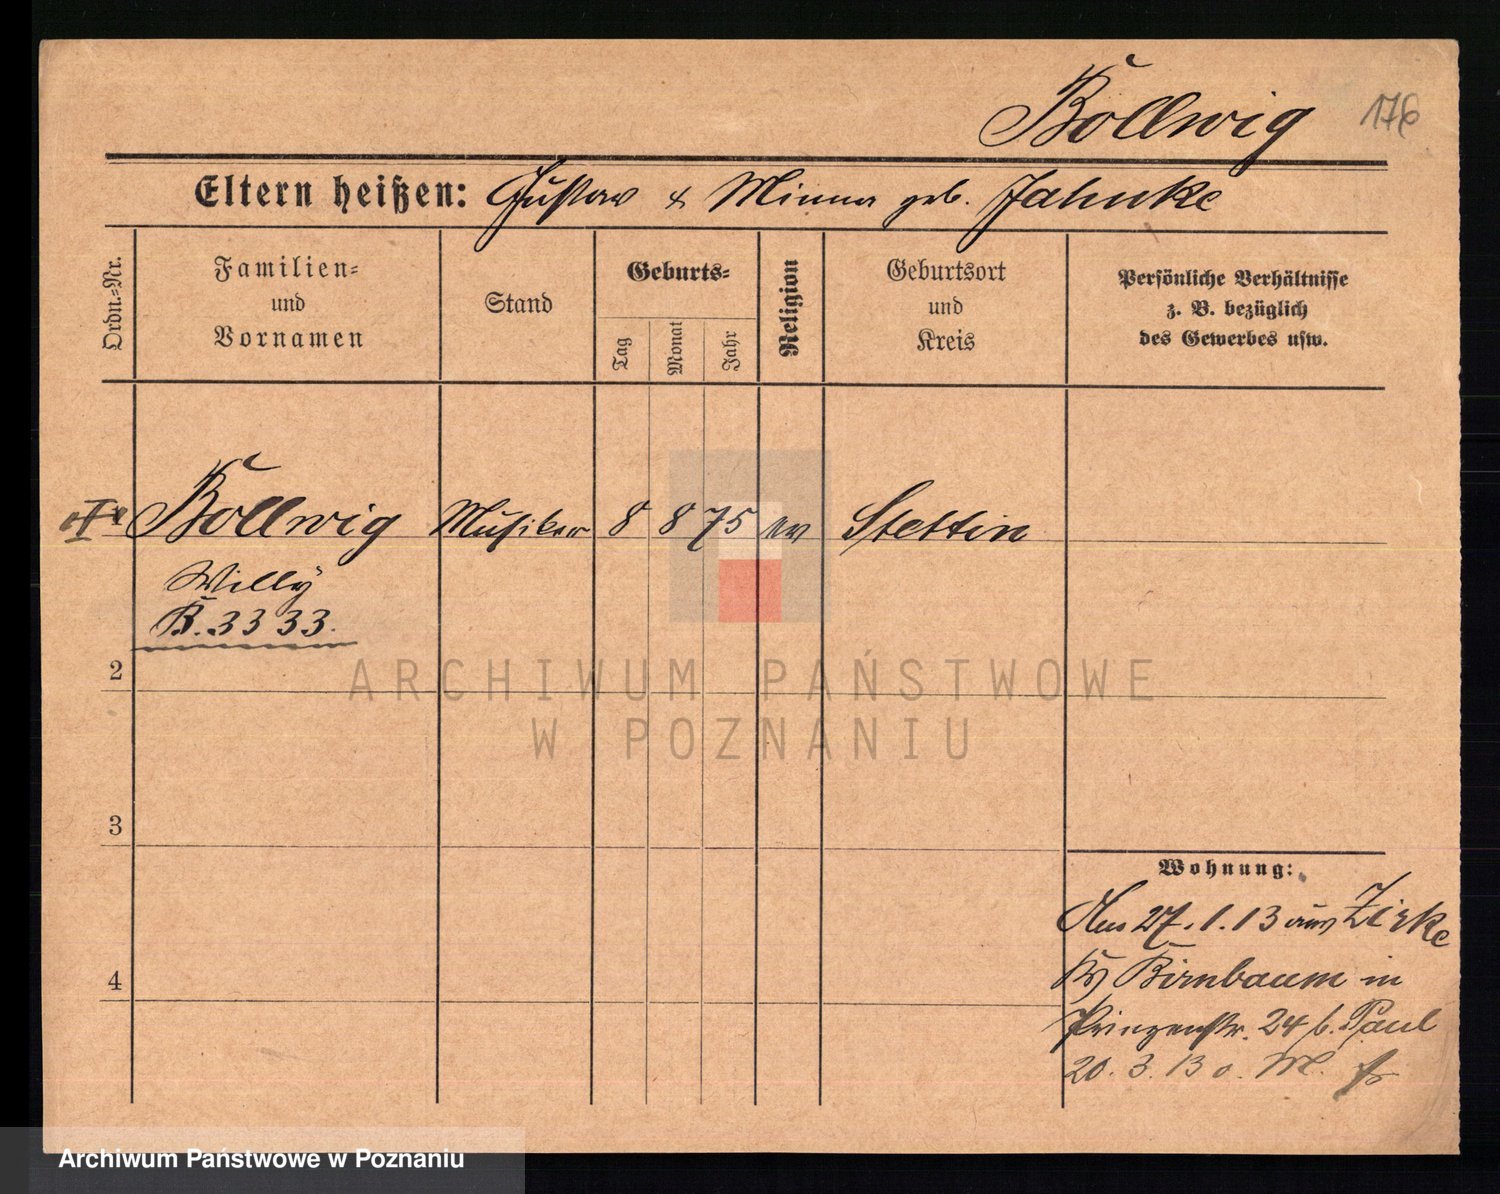 Bollwig 176
Eltern heißen: Gustav & Minna geb. Jahnke
Ordn.-Nr.
Familien-
und
Vornamen
Stand
Geburts-
Tag
Monat
Jahr
Religion
Geburtsort
und
Kreis
Persönliche Verhältnisse
z. B. bezüglich
des Gewerbes usw.
Bollwig Musiker 8 8 75 ev Stettin
Willy
K. 3333.
2
ARCHIWUM PAŃSTWOWE
W POZNANIU
3
4
Wohnung:
27.1.13 aus Zirke
Kr Birnbaum in
Prinzenstr. 24 b. Paul
20.3.13 o. M.
Archiwum Państwowe w Poznaniu